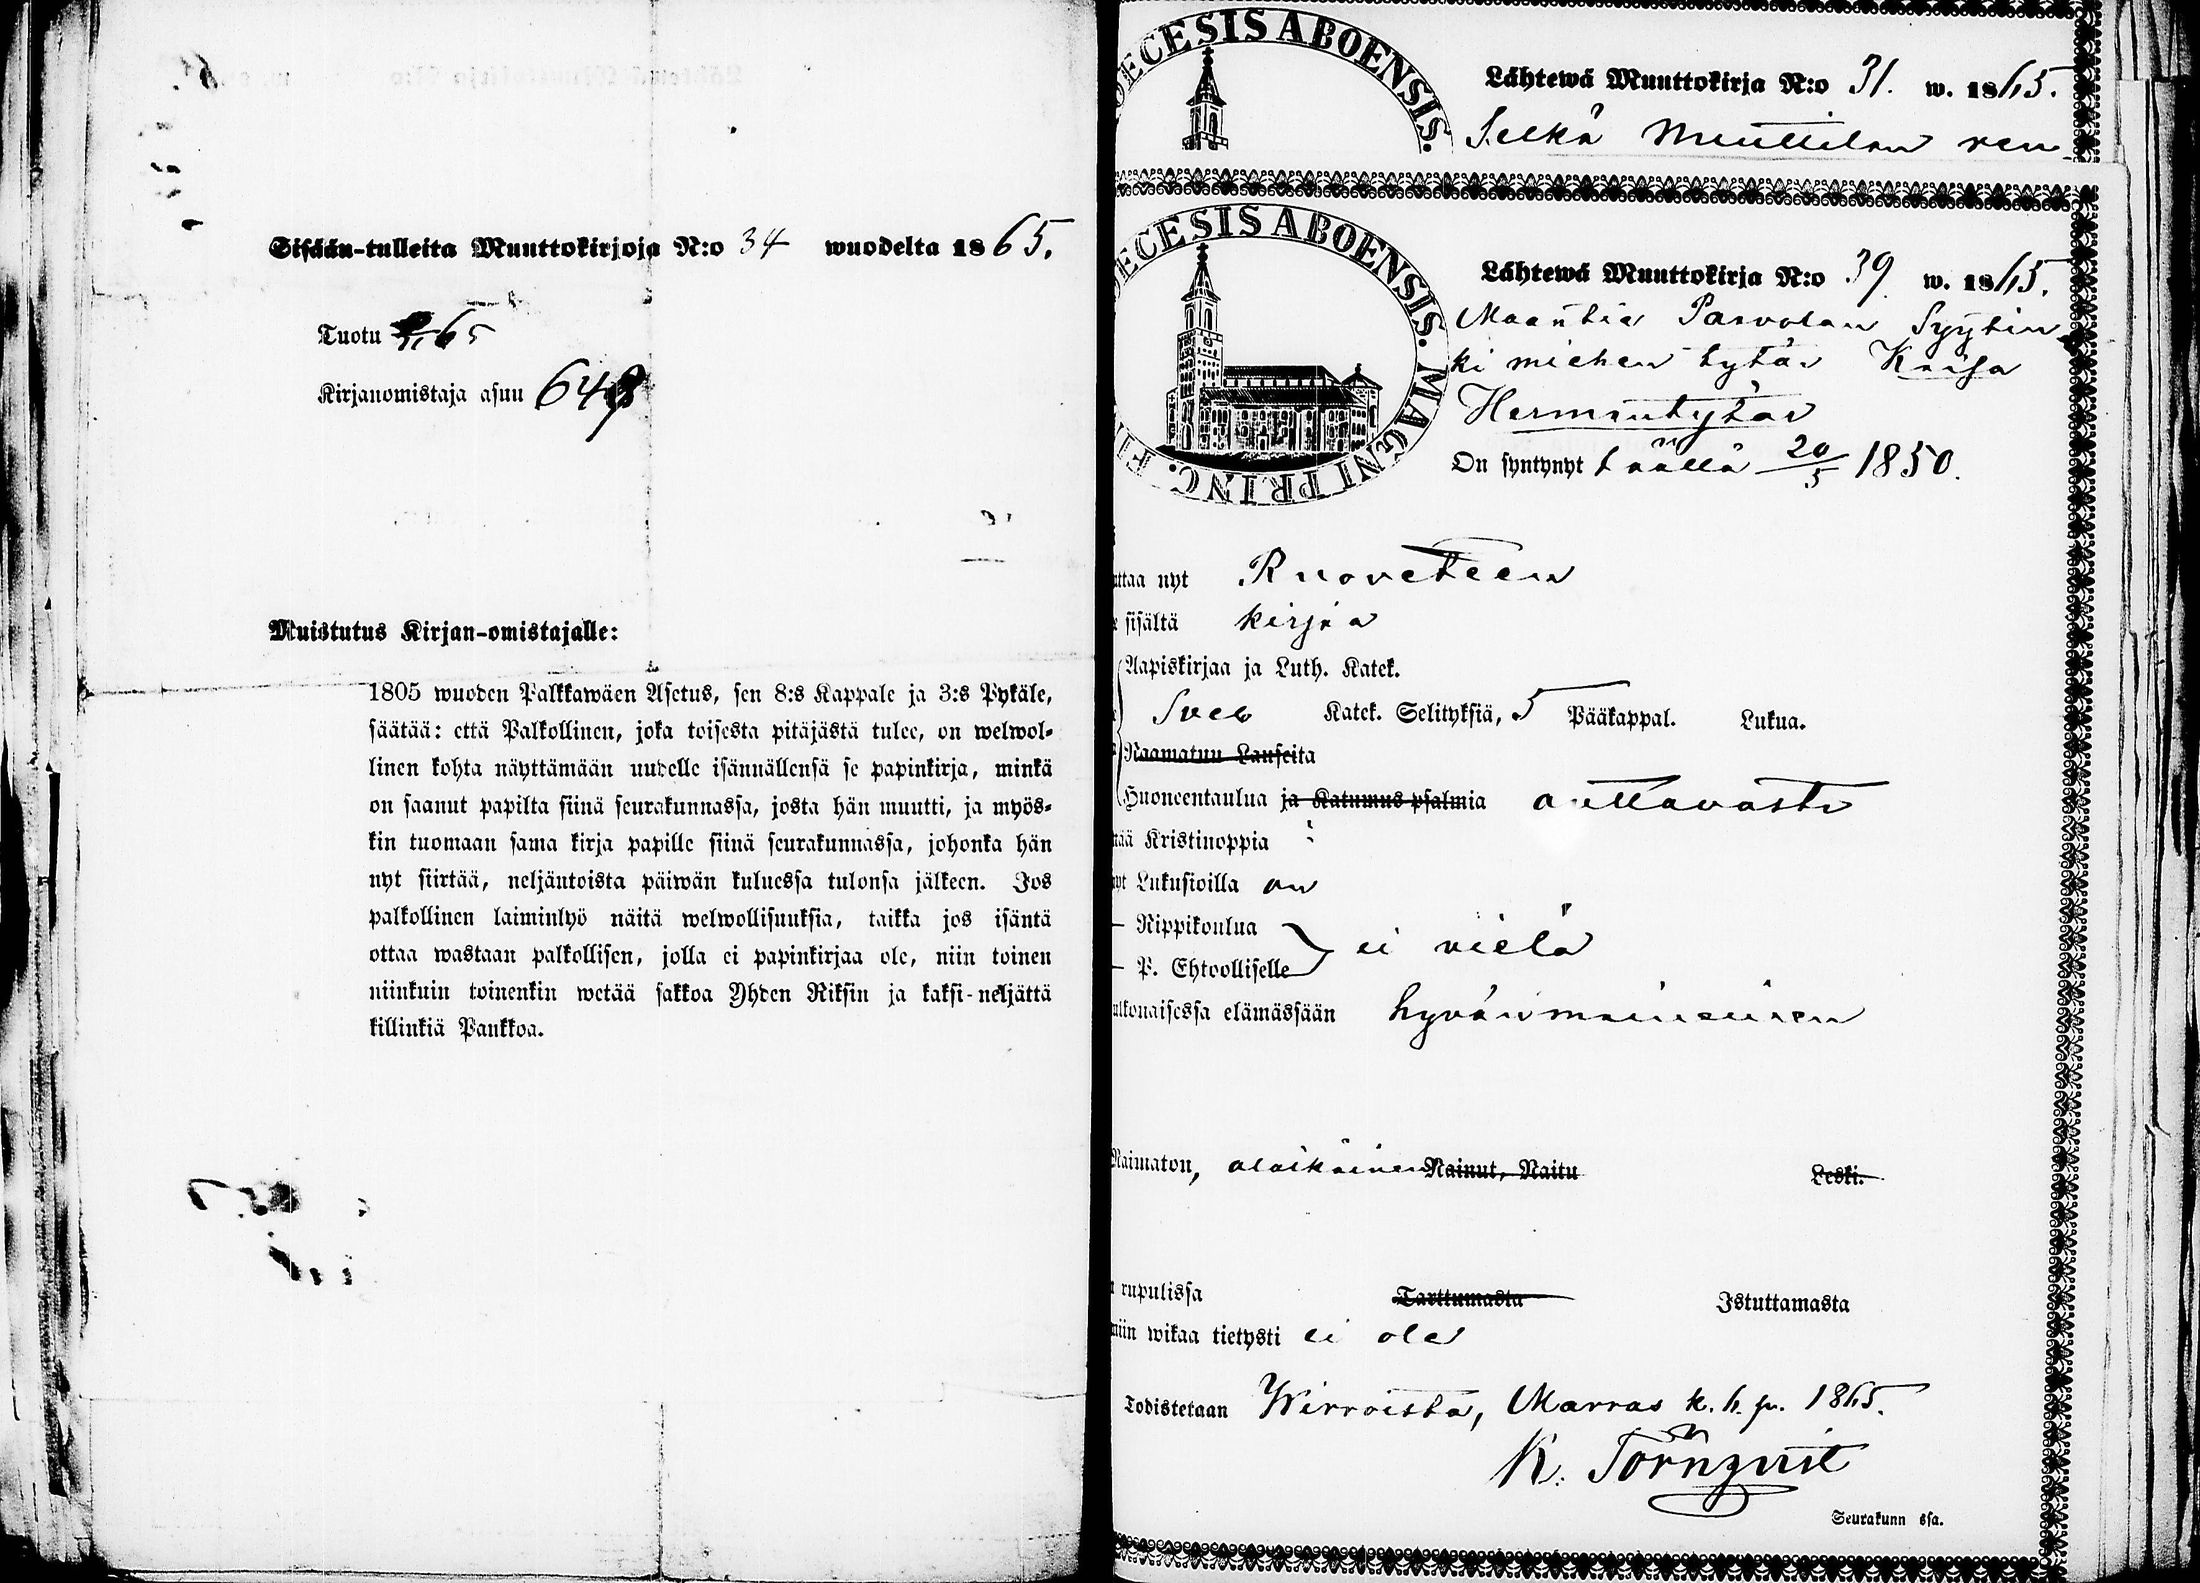 Sisään-tulleita Muuttokirjoja N:o 34 wuodelta 1865.
Tuotu 65
Kirjanomistaja asuu 648
Muistutus Kirjan-omistajalle:
1805 wuoden Palkkawäen Asetus, sen 8:s Kappale ja 3:s Pykäle,
säätää: että Palkollinen, joka toisesta pitäjästä tulee, on welwol-
linen kohta näyttämään uudelle isännällensä se papinkirja, minkä
on saanut papilta siinä seurakunnassa, josta hän muutti, ja myös-
kin tuomaan sama kirja papille siinä seurakunnassa, johonka hän
nyt siirtää, neljäntoista päiwän kuluessa tulonsa jälkeen. Jos
palkollinen laiminlyö näitä welwollisuuksia, taikka jos isäntä
ottaa wastaan palkollisen, jolla ei papinkirjaa ole, niin toinen
niinkuin toinenkin wetää sakkoa Yhden Riksin ja kaksi-neljättä
killinkiä Pankkoa.
DECESIS ABOENSIS.
Lähtewä Muuttokirja N:o 31. w. 1865.
Selkä Muttilan ren
ECESIS ABOENSIS. MAGNI PRINC. FI
Lähtewä Muuttokirja N:o 39. w. 1865.
Parvolan Syytin
ki miehen tytär Kaisa
Hermantytär
On syntynyt täällä 20/5 1850.
ttaa nyt Ruoveteen
sisältä kirjaa
Aapiskirjaa ja Luth. Katek.
Sveb Katek. Selityksiä, 5 Pääkappal. Lukua.
Raamatun Lauseita
Huoneentaulua ja Katumus psalmia auttavasti
tää Kristinoppia
yt Lukusioilla on
— Rippikoulua
ei vielä
— P. Ehtoolliselle
ulkonaisessa elämässään hyvänmaineinen
Naimaton, alaikäinen Nainut, Naitu Leski.
rupulissa Tarttumasta Istuttamasta
niin wikaa tietysti ei ole
Todistetaan Wirroista, Marras k. 6. p. 1865.
K. Törnqvist
Seurakunn ssa.